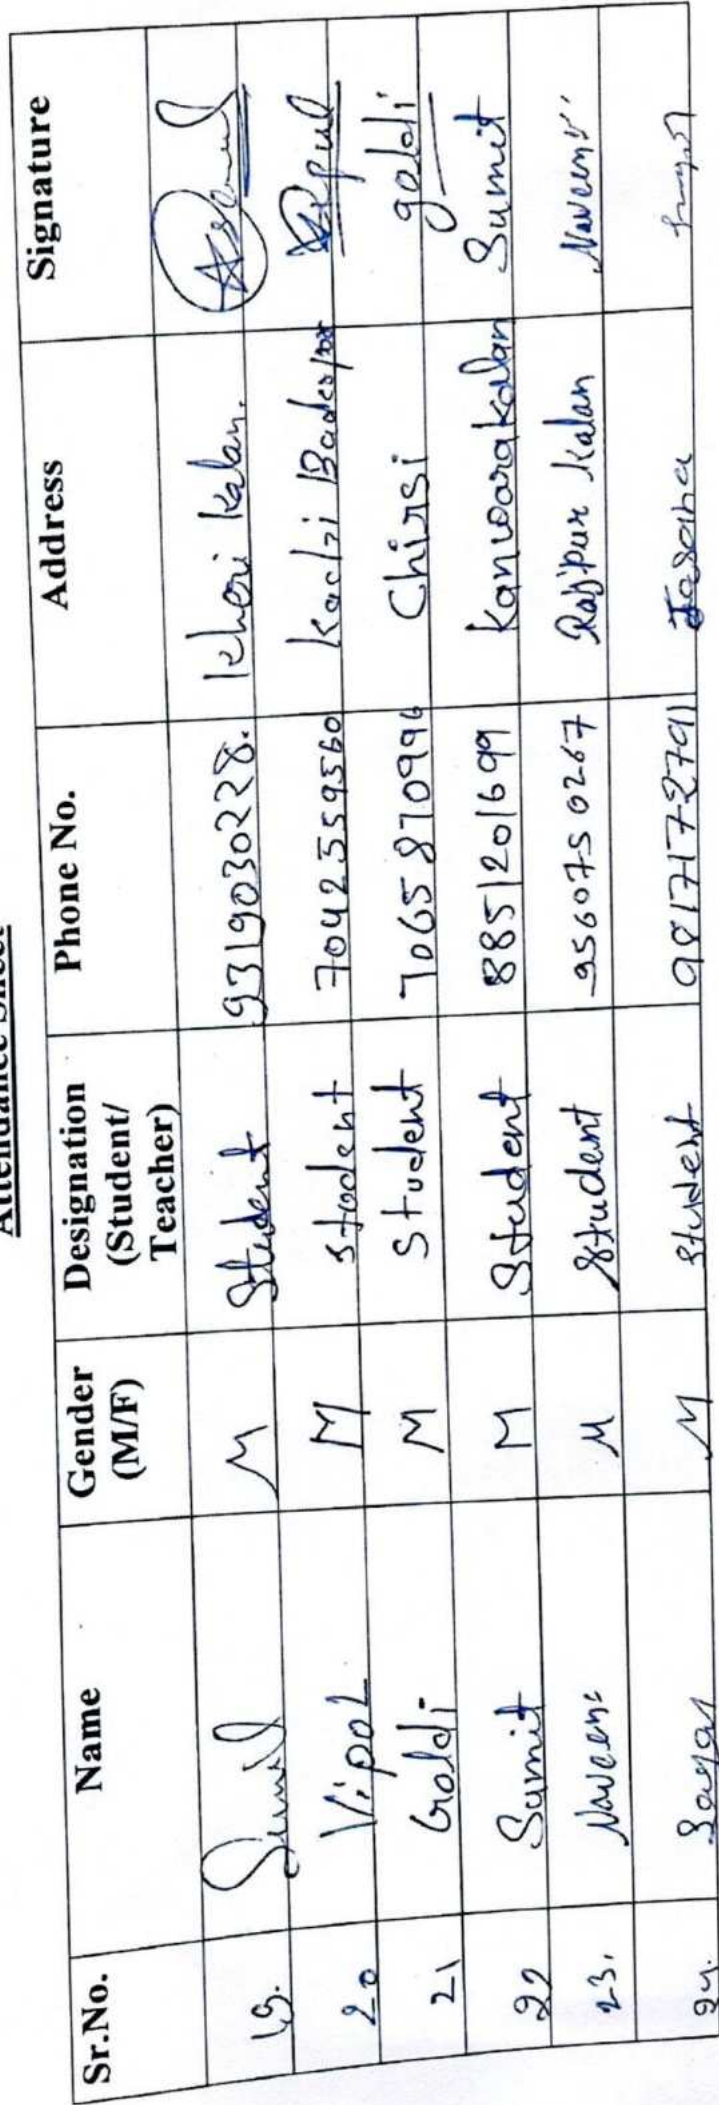 Attendance Sheet
Sr.No. Name Gender (M/F) Designation (Student/ Teacher) Phone No. Address Signature
19. Sunil M Student 9319030228. Kheri Kalan.
20 Vipol M student 7042559560 Vipul
21 Goldi M Student 7065870996 Chirsi goldi
22 Sumit M Student 8851201699 Kanwarakalan Sumit
23. Naveen M Student 9560750267 Rajpur Kalan Naveen
24. Sagar M Student 9817172791 Jasana